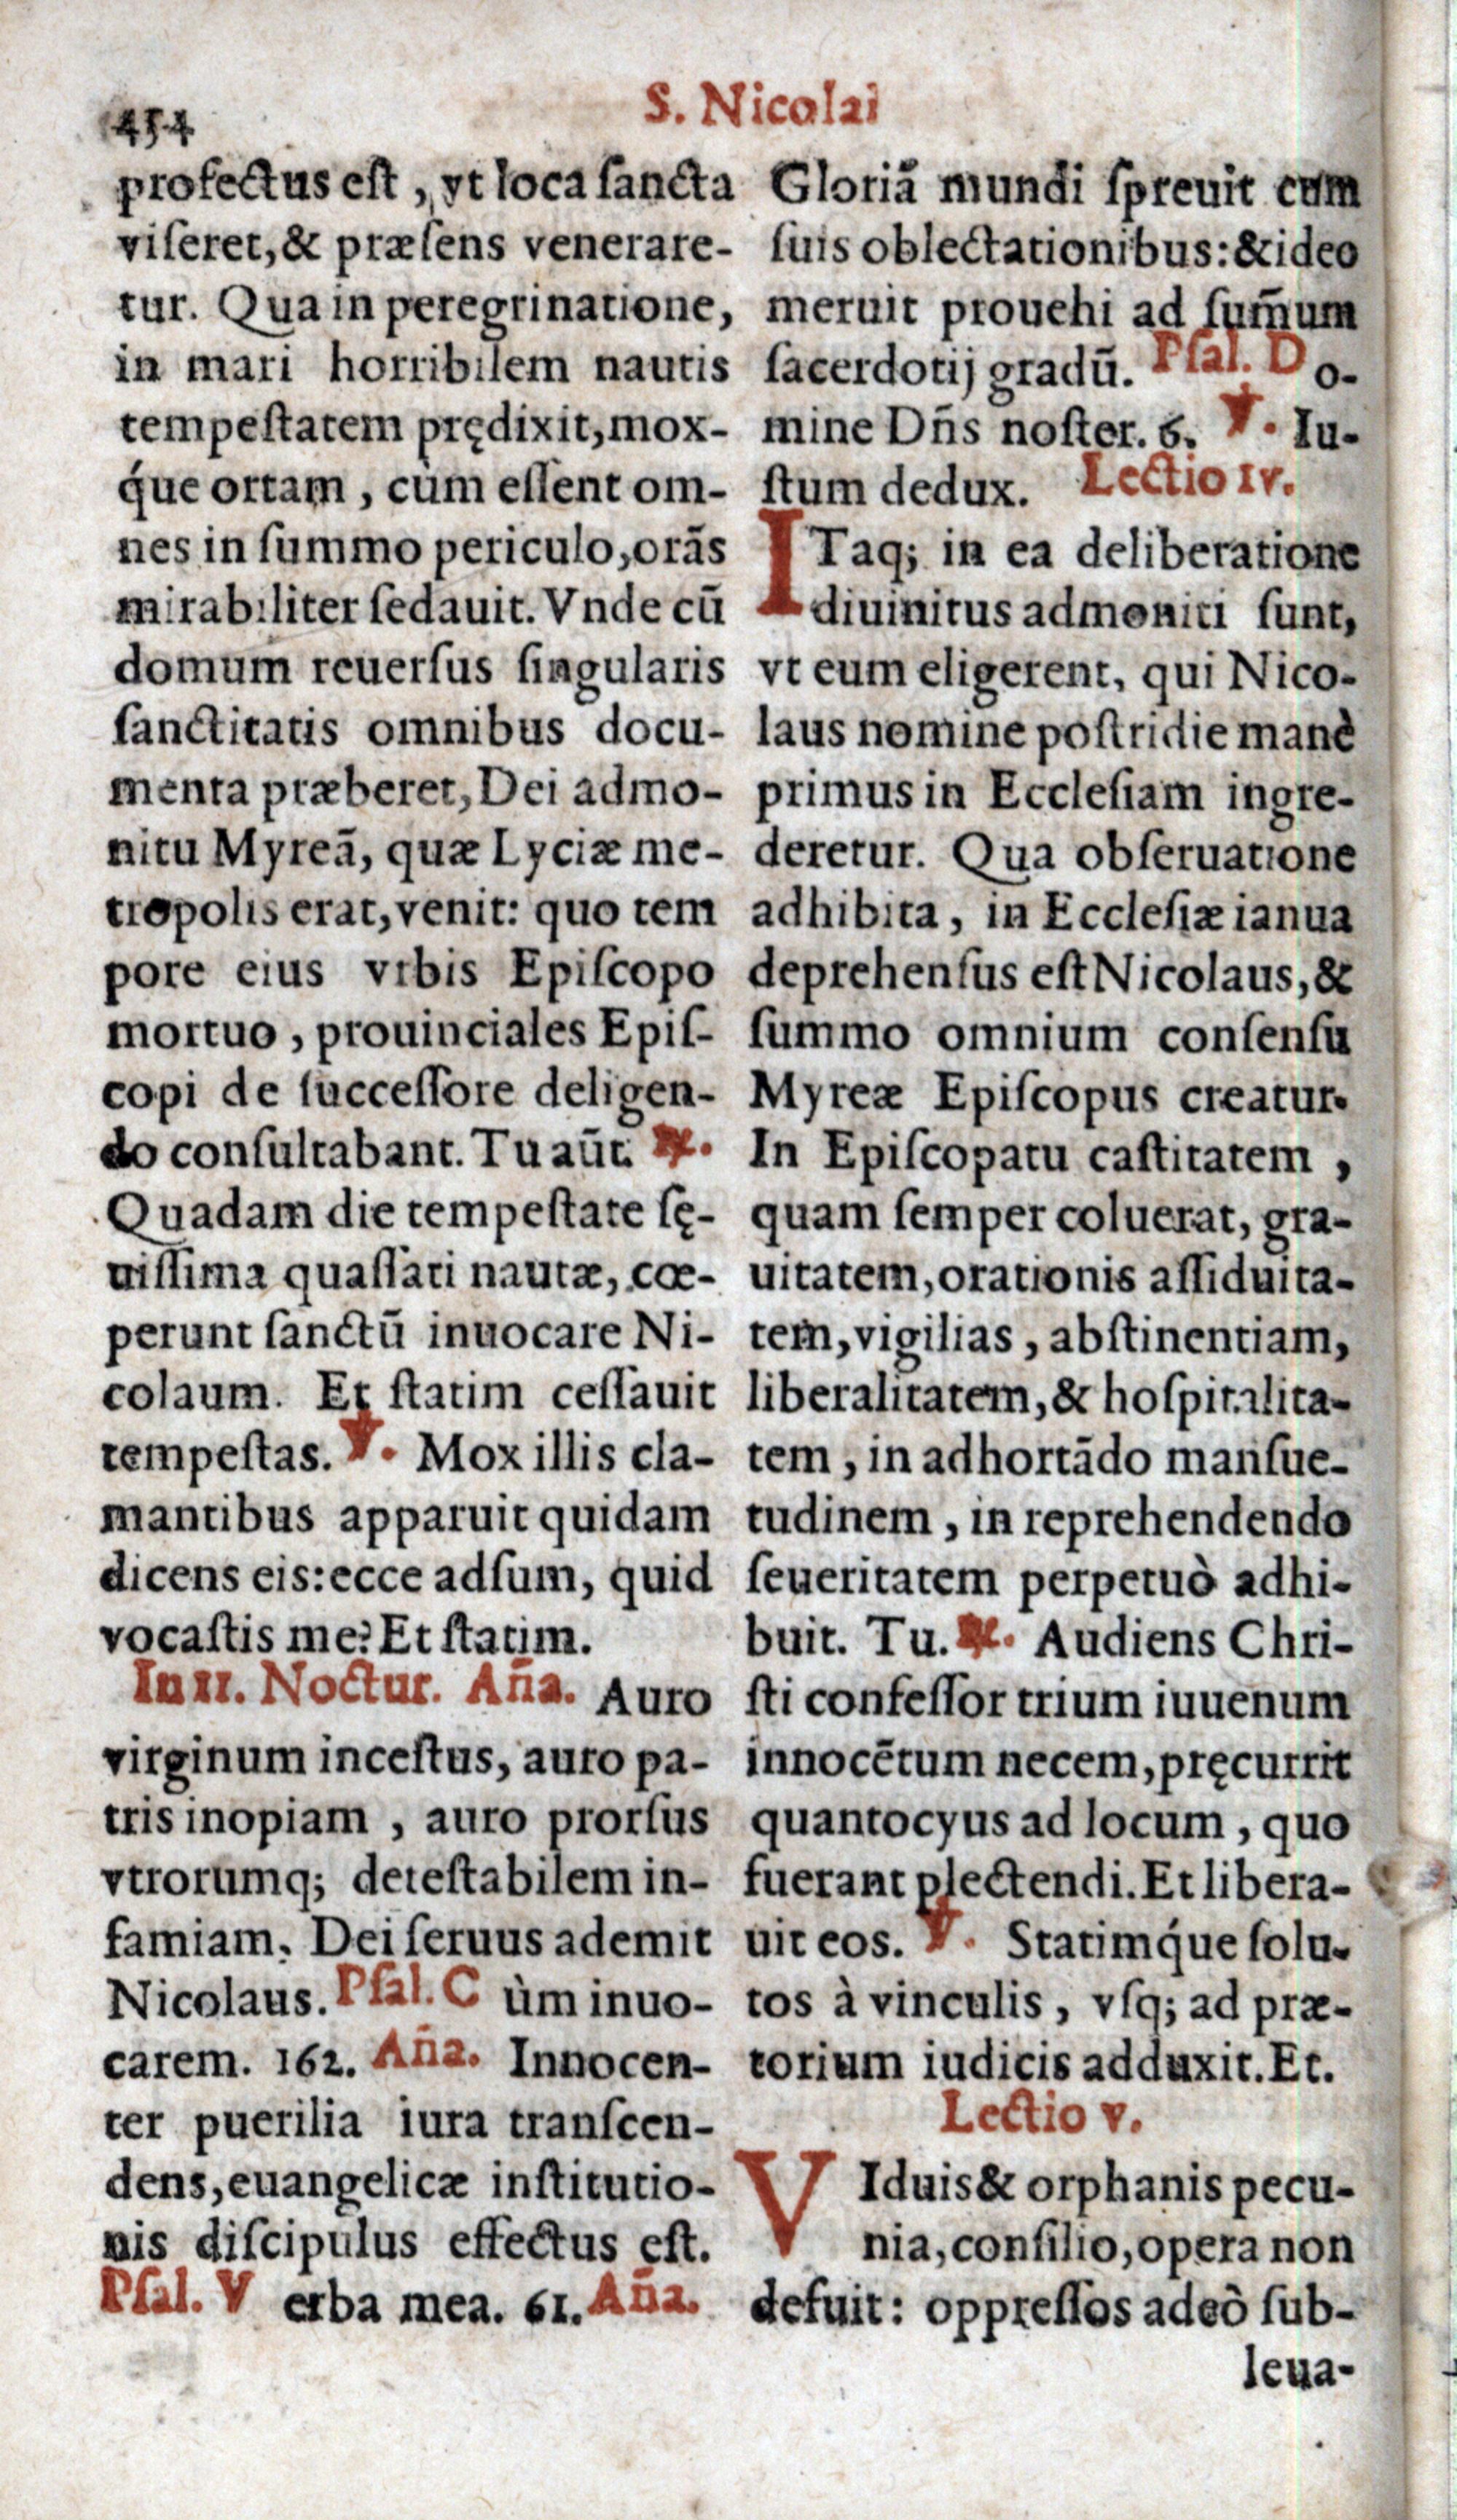 454
S. Nicolai
profectus est, vt loca ſancta
viſeret, & præſens venerare-
tur. Qua in peregrinatione,
in mari horribilem nautis
tempeſtatem prędixit, mox-
q́ue ortam, cùm eſſent om-
nes in ſummo periculo, orãs
mirabiliter ſedauit. Vnde cũ
domum reuerſus ſingularis
ſanctitatis omnibus docu-
menta præberet, Dei admo-
nitu Myreã, quæ Lyciæ me-
tropolis erat, venit: quo tem
pore eius vrbis Epiſcopo
mortuo, prouinciales Epiſ-
copi de ſucceſſore deligen-
do conſultabant. Tu aũt. ℟.
Quadam die tempeſtate ſę-
uiſſima quaſſati nautæ, cœ-
perunt ſanctũ inuocare Ni-
colaum. Et ſtatim ceſſauit
tempeſtas. ℣. Mox illis cla-
mantibus apparuit quidam
dicens eis: ecce adſum, quid
vocaſtis me? Et ſtatim.
In II. Noctur. Añа. Auro
virginum inceſtus, auro pa-
tris inopiam, auro prorſus
vtrorumq; deteſtabilem in-
famiam, Dei ſeruus ademit
Nicolaus. Pſal. Cùm inuo-
carem. 162. Aña. Innocen-
ter puerilia iura tranſcen-
dens, euangelicæ inſtitutio-
nis diſcipulus effectus eſt.
Pſal. Verba mea. 61. Aña.
Gloriã mundi ſpreuit cum
ſuis oblectationibus: & ideo
meruit prouehi ad ſum̃um
ſacerdotij gradũ. Pſal. Do-
mine Dñs noſter. 6. ℣. Iu-
ſtum dedux. Lectio IV.
ITaq; in ea deliberatione
diuinitus admoniti ſunt,
vt eum eligerent, qui Nico-
laus nomine poſtridie manè
primus in Eccleſiam ingre-
deretur. Qua obſeruatione
adhibita, in Eccleſiæ ianua
deprehenſus eſt Nicolaus, &
ſummo omnium conſenſu
Myreæ Epiſcopus creatur.
In Epiſcopatu caſtitatem,
quam ſemper coluerat, gra-
uitatem, orationis aſſiduita-
tem, vigilias, abſtinentiam,
liberalitatem, & hoſpitalita-
tem, in adhortãdo manſue-
tudinem, in reprehendendo
ſeueritatem perpetuò adhi-
buit. Tu. ℟. Audiens Chri-
ſti confeſſor trium iuuenum
innocẽtum necem, pręcurrit
quantocyus ad locum, quo
fuerant plectendi. Et libera-
uit eos. ℣. Statimq́ue ſolu-
tos à vinculis, vſq; ad præ-
torium iudicis adduxit. Et.
Lectio V.
VIduis & orphanis pecu-
nia, conſilio, opera non
defuit: oppreſſos adeò ſub-
leua-